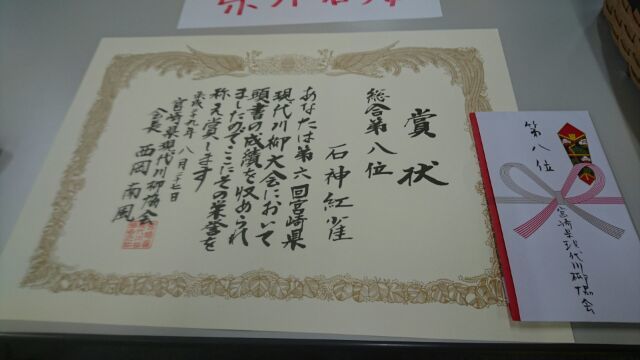 賞状
総合第八位
石神紅雀
あなたは第六回宮崎県
現代川柳大会において
頭書の成績を収められ
ましたのでここにその栄誉を
称え賞します
平成二十九年八月二十七日
宮崎県現代川柳協会
会長 西岡南風
第八位
宮崎県現代川柳協会